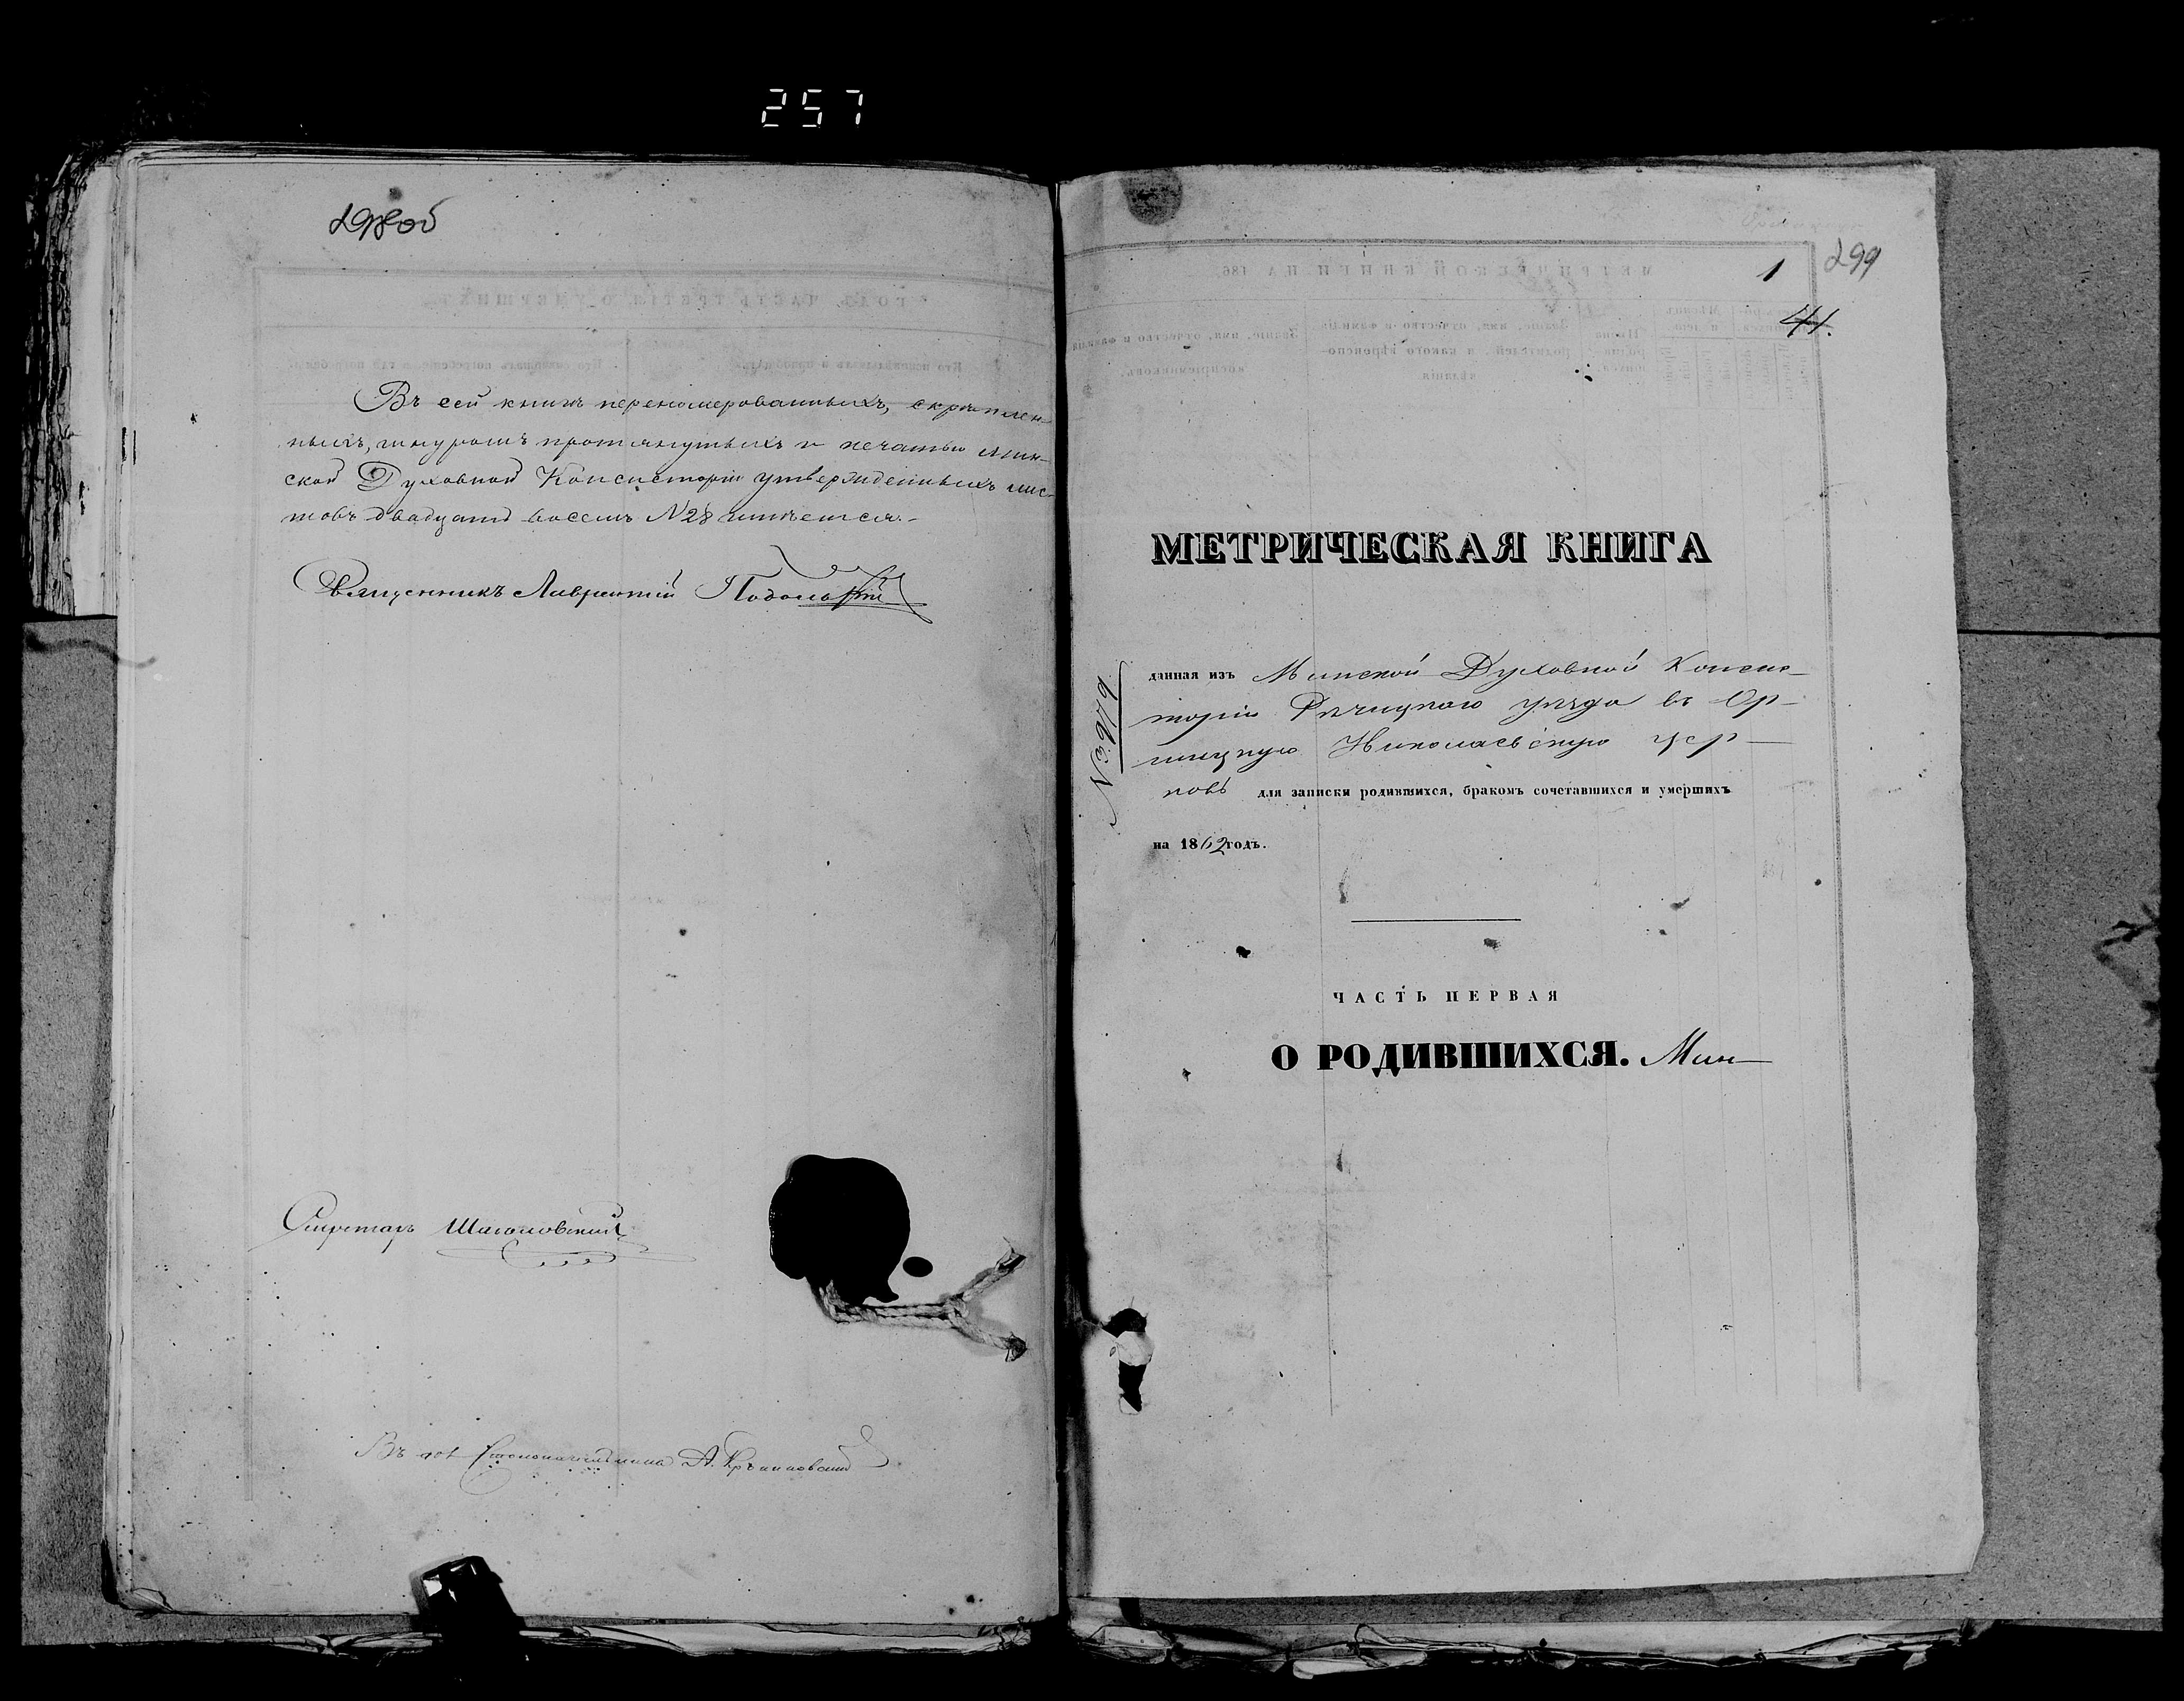 257
298об
Въ сей книгѣ перенумерованныхъ, скрѣплен-
ныхъ, шнуромъ протянутыхъ и печатью Мин-
ской Духовной Консисторіи утвержденныхъ лис-
товъ двадцать восемь №28 имѣется.-
Священникъ Лаврентій
Секретарь
Въ дол Столоначальника А.
299
1
41.
МЕТРИЧЕСКАЯ КНИГА
данная изъ Минской Духовной Консис-
торіи Рѣчицкаго уѣзда въ Ор-
шицкую Николаевскую цер-
ковь для записки родившихся, бракомъ сочетавшихся и умершихъ
на 1862 годъ.
№3979
ЧАСТЬ ПЕРВАЯ
О РОДИВШИХСЯ. Мин-